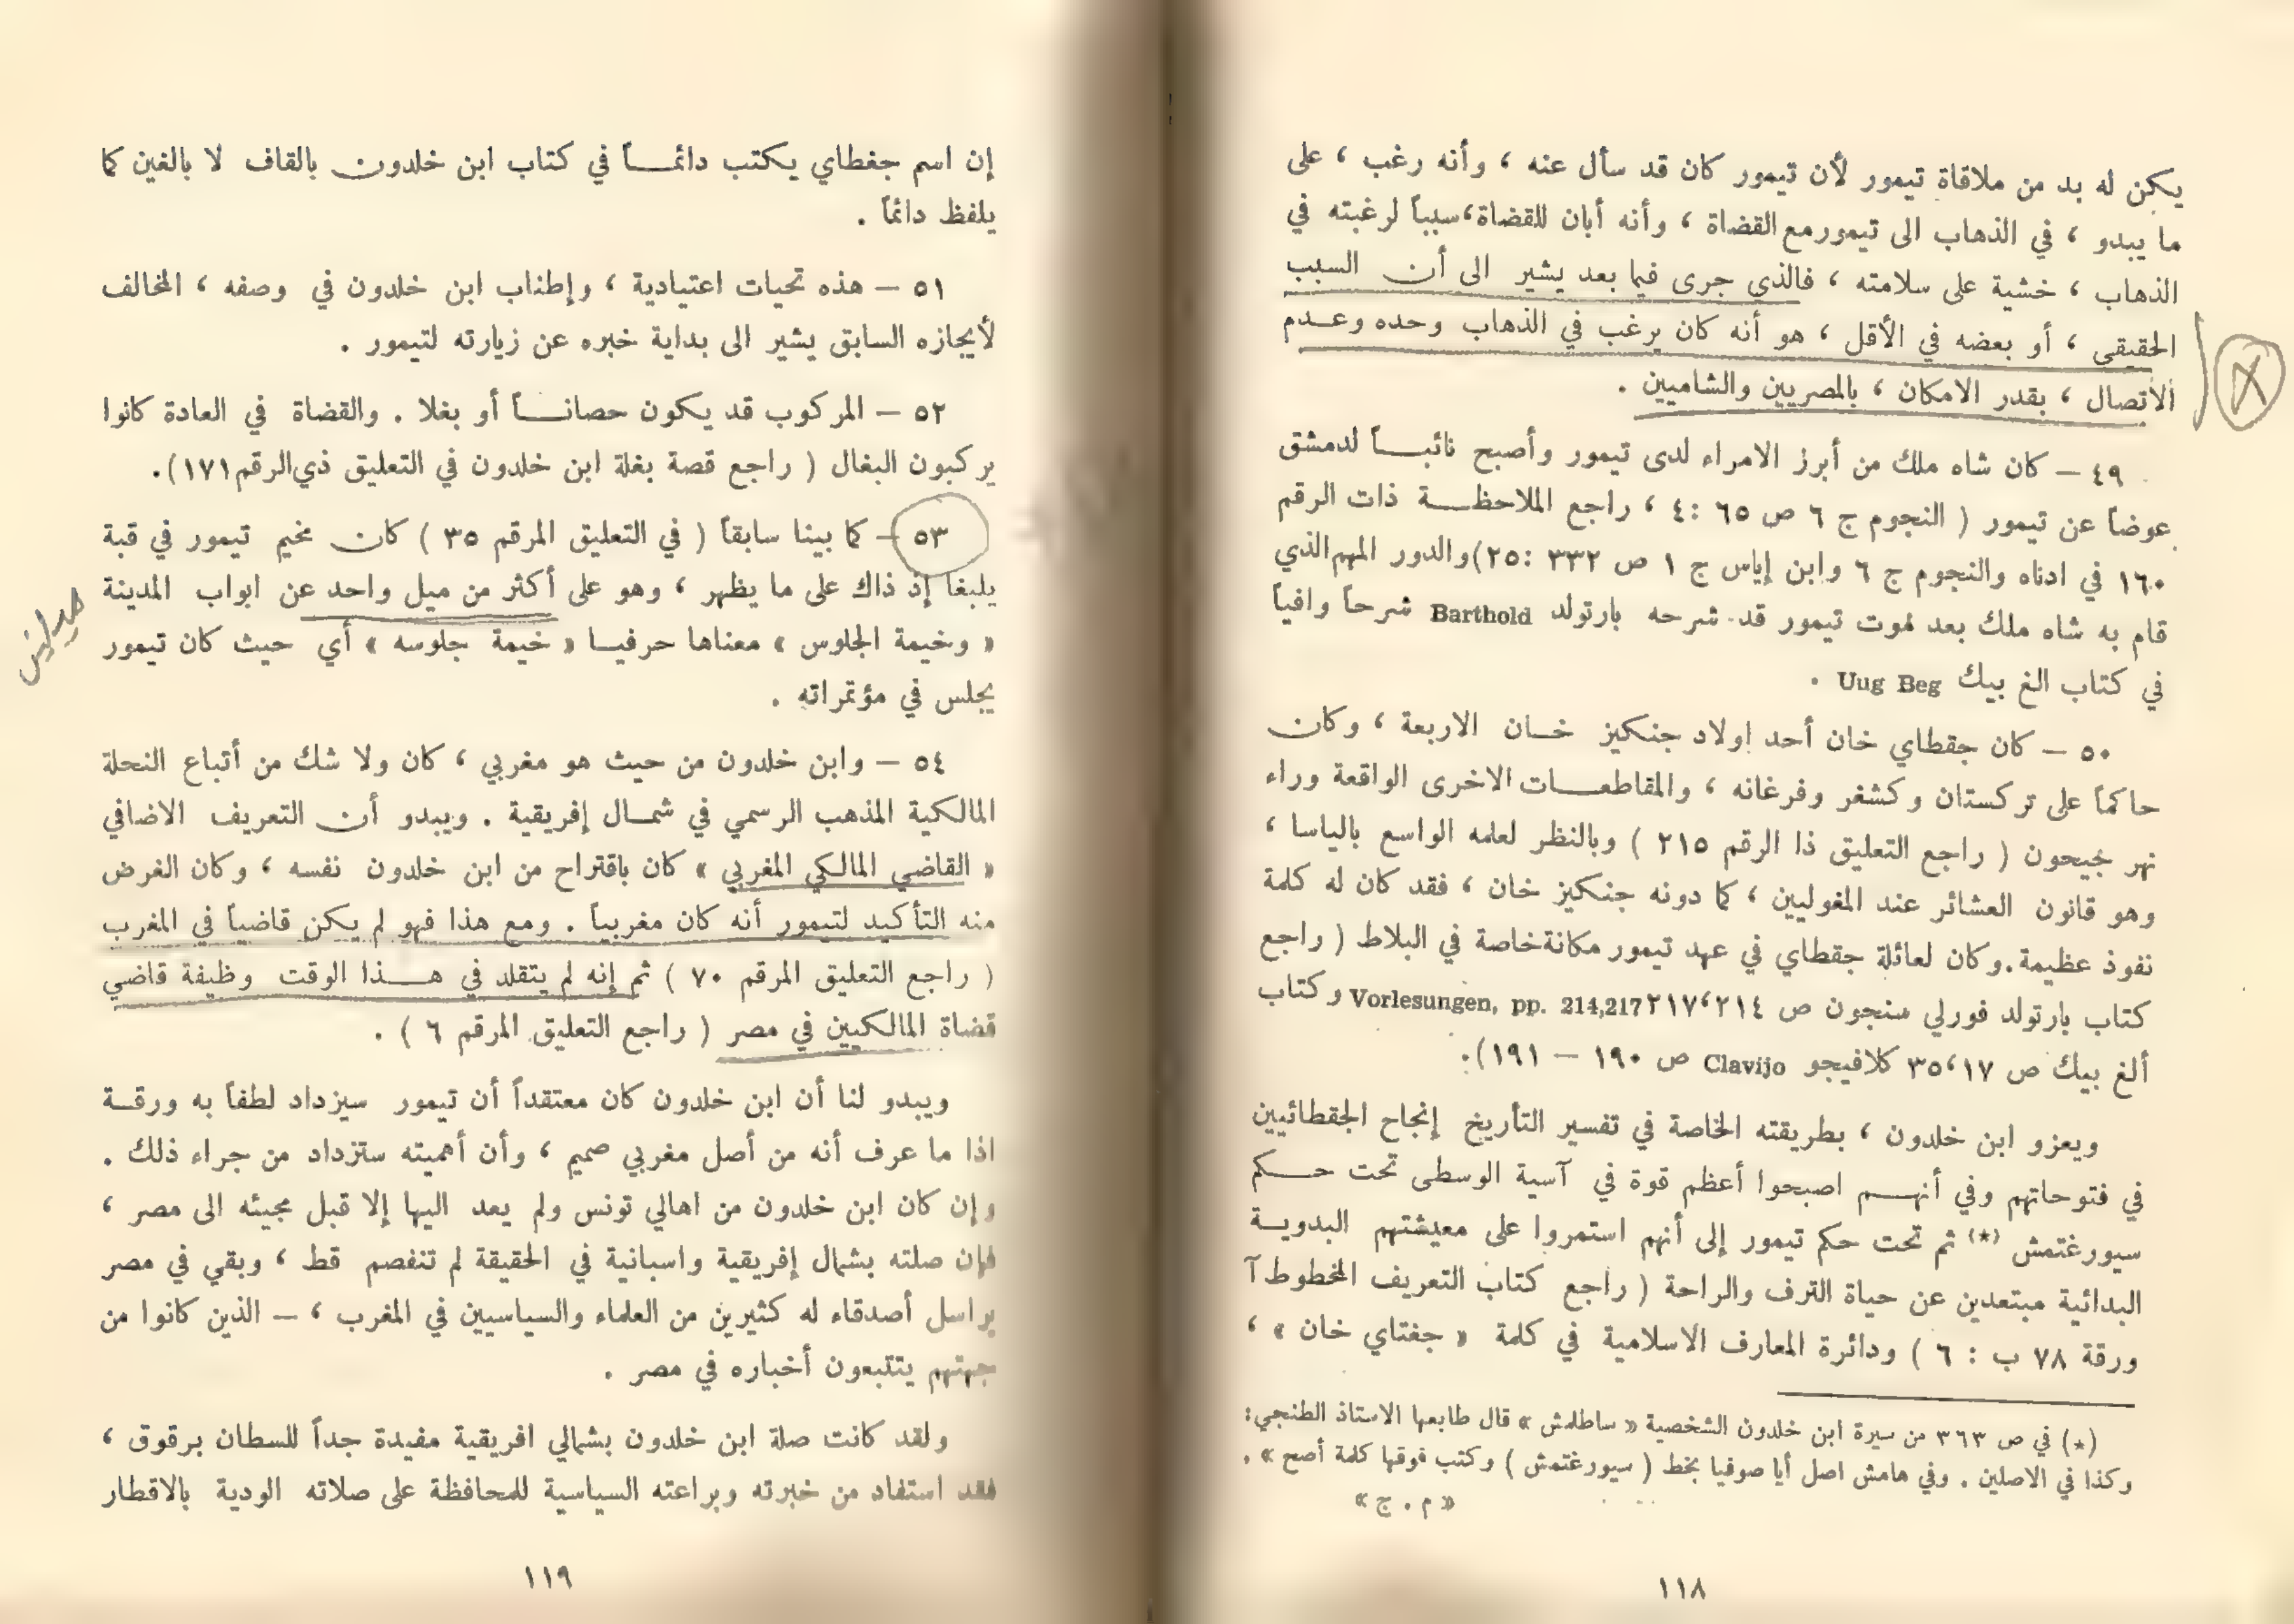 يكن له بد من ملاقاة تيمور لأن تيمور كان قد سأل عنه ، وأنه رغب ، على
ما يبدو ، في الذهاب الى تيمور مع القضاة ، وأنه أبان للقضاة ، سبباً لرغبته في
الذهاب ، خشية على سلامته ، فالذي جرى فيما بعد يشير الى أن السبب
الحقيقي ، أو بعضه في الأقل ، هو أنه كان يرغب في الذهاب وحده وعدم
الاتصال ، بقدر الامكان ، بالمصريين والشاميين .
٤٩ – كان شاه ملك من أبرز الامراء لدى تيمور وأصبح نائباً لدمشق
عوضاً عن تيمور ( النجوم ج ٦ ص ٦٥ :٤ ، راجع الملاحظة ذات الرقم
١٦٠ في ادناه والنجوم ج ٦ وابن إياس ج ١ ص ٣٣٢ :٢٥) والدور المهم الذي
قام به شاه ملك بعد موت تيمور قد شرحه بارتولد Barthold شرحاً وافياً
في كتاب الغ بيك Uug Beg .
٥٠ – كان جقطاي خان أحد اولاد جنكيز خان الاربعة ، وكان
حاكماً على تركستان وكشغر وفرغانه ، والمقاطعات الاخرى الواقعة وراء
نهر جيحون ( راجع التعليق ذا الرقم ٢١٥ ) وبالنظر لعلمه الواسع بالياسا ،
وهو قانون العشائر عند المغوليين ، كما دونه جنكيز خان ، فقد كان له كلمة
نفوذ عظيمة . وكان لعائلة جقطاي في عهد تيمور مكانة خاصة في البلاط ( راجع
كتاب بارتولد فورلي سنجون ص ٢١٤،٢١٧ Vorlesungen, pp. 214,217 وكتاب
ألغ بيك ص ٣٥،١٧ كلافيجو Clavijo ص ١٩٠ – ١٩١).
ويعزو ابن خلدون ، بطريقته الخاصة في تفسير التأريخ إنجاح الجقطائيين
في فتوحاتهم وفي أنهم اصبحوا أعظم قوة في آسية الوسطى تحت حكم
سيورغتمش (*) ثم تحت حكم تيمور إلى أنهم استمروا على معيشتهم البدوية
البدائية مبتعدين عن حياة الترف والراحة ( راجع كتاب التعريف المخطوط آ
ورقة ٧٨ ب : ٦ ) ودائرة المعارف الاسلامية في كلمة « جغتاي خان » ،
(*) في ص ٣٦٣ من سيرة ابن خلدون الشخصية « ساطلمش » قال طابعها الاستاذ الطنجي :
وكذا في الاصلين . وفي هامش اصل أيا صوفيا بخط ( سيورغتمش ) وكتب فوقها كلمة أصح » .
« م . ج »
١١٨
إن اسم جغطاي يكتب دائماً في كتاب ابن خلدون بالقاف لا بالغين كما
يلفظ دائماً .
٥١ – هذه تحيات اعتيادية ، وإطناب ابن خلدون في وصفه ، المخالف
لأيجازه السابق يشير الى بداية خبره عن زيارته لتيمور .
٥٢ – المركوب قد يكون حصاناً أو بغلا . والقضاة في العادة كانوا
يركبون البغال ( راجع قصة بغلة ابن خلدون في التعليق ذي الرقم ١٧١).
٥٣ – كما بينا سابقاً ( في التعليق المرقم ٣٥ ) كان مخيم تيمور في قبة
يلبغا إذ ذاك على ما يظهر ، وهو على أكثر من ميل واحد عن ابواب المدينة
« وخيمة الجلوس » معناها حرفيا « خيمة جلوسه » أي حيث كان تيمور
يجلس في مؤتمراته .
٥٤ – وابن خلدون من حيث هو مغربي ، كان ولا شك من أتباع النحلة
المالكية المذهب الرسمي في شمال إفريقية . ويبدو أن التعريف الاضافي
« القاضي المالكي المغربي » كان باقتراح من ابن خلدون نفسه ، وكان الغرض
منه التأكيد لتيمور أنه كان مغربياً . ومع هذا فهو لم يكن قاضياً في المغرب
( راجع التعليق المرقم ٧٠ ) ثم إنه لم يتقلد في هذا الوقت وظيفة قاضي
قضاة المالكيين في مصر ( راجع التعليق المرقم ٦ ) .
ويبدو لنا أن ابن خلدون كان معتقداً أن تيمور سيزداد لطفاً به ورقة
اذا ما عرف أنه من أصل مغربي صميم ، وأن أهميته ستزداد من جراء ذلك .
وإن كان ابن خلدون من اهالي تونس ولم يعد اليها إلا قبل مجيئه الى مصر ،
فإن صلته بشمال إفريقية واسبانية في الحقيقة لم تنفصم قط ، وبقي في مصر
يراسل أصدقاء له كثيرين من العلماء والسياسيين في المغرب ، – الذين كانوا من
جهتهم يتتبعون أخباره في مصر .
ولقد كانت صلة ابن خلدون بشمالي افريقية مفيدة جداً للسطان برقوق ،
فقد استفاد من خبرته وبراعته السياسية للمحافظة على صلاته الودية بالاقطار
١١٩